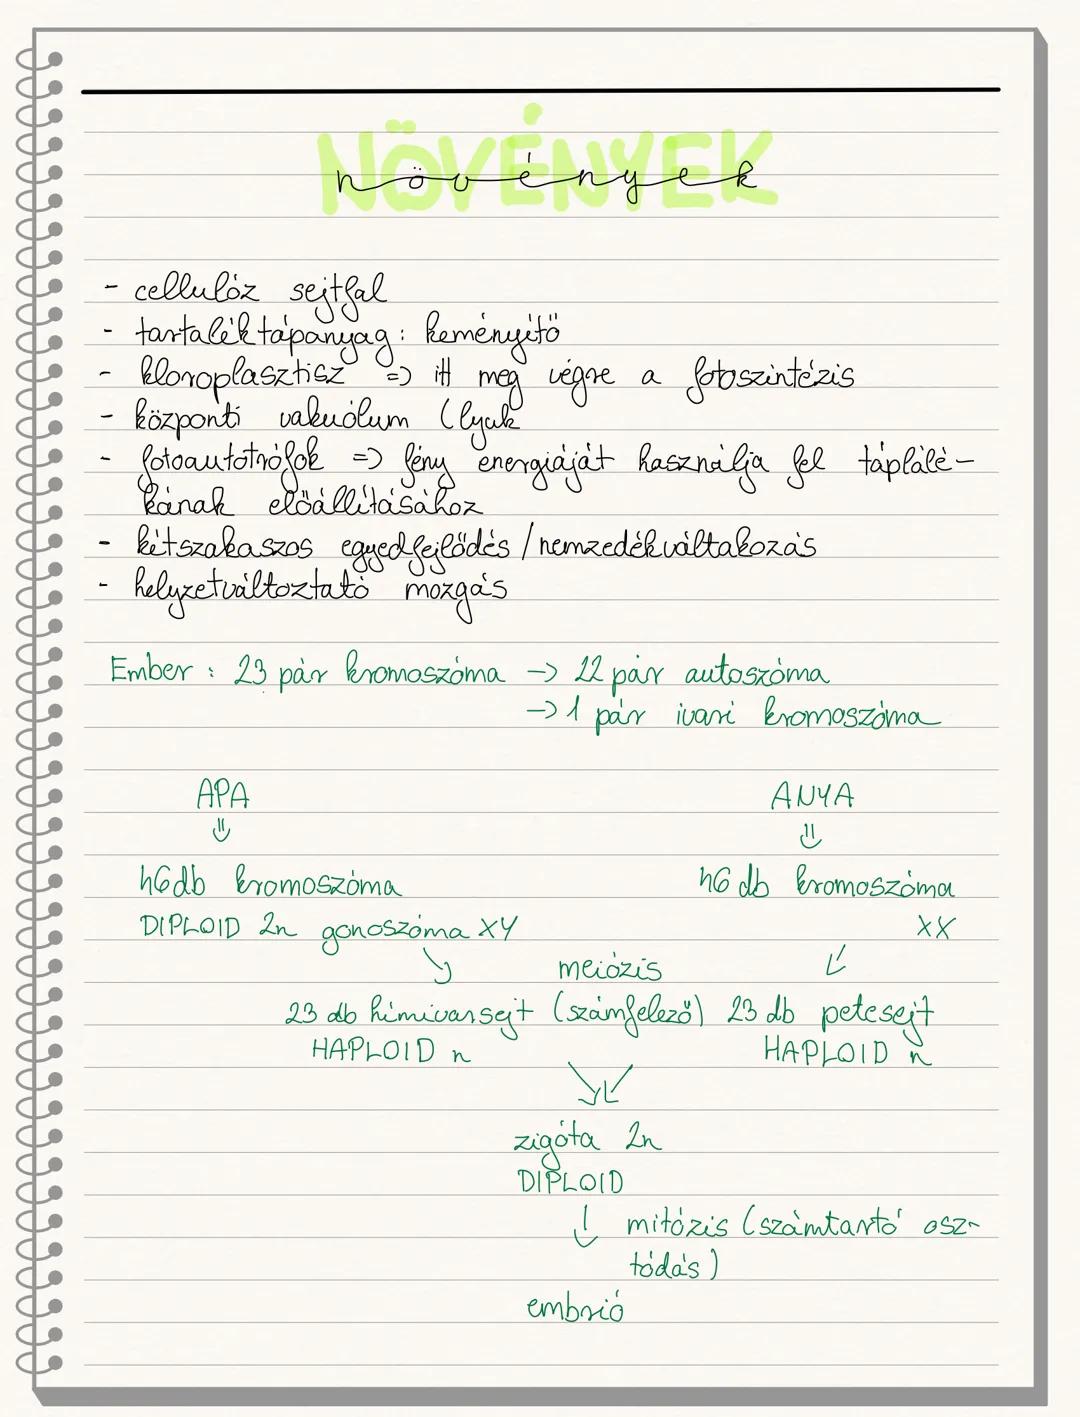 NÖVÉNYEK
növények
- cellulóz sejtfal
- tartalék tápanyag: keményítő
- kloroplasztisz => itt meg végre a fotoszintézis
- központi vakuólum (lyuk
- fotoautotrófok => fény energiáját használja fel táplálé-
kának előállításához
- kétszakaszos egyedfejlődés / nemzedékváltakozás
- helyzetváltoztató mozgás
Ember: 23 pár kromoszóma -> 22 pár autoszóma
-> 1 pár ivari kromoszóma
APA ANYA
46 db kromoszóma 46 db kromoszóma
DIPLOID 2n gonoszóma XY XX
meiózis
23 db hímivarsejt (számfelező) 23 db petesejt
HAPLOID n HAPLOID n
zigóta 2n
DIPLOID
mitózis (számtartó osz-
tódás)
embrió